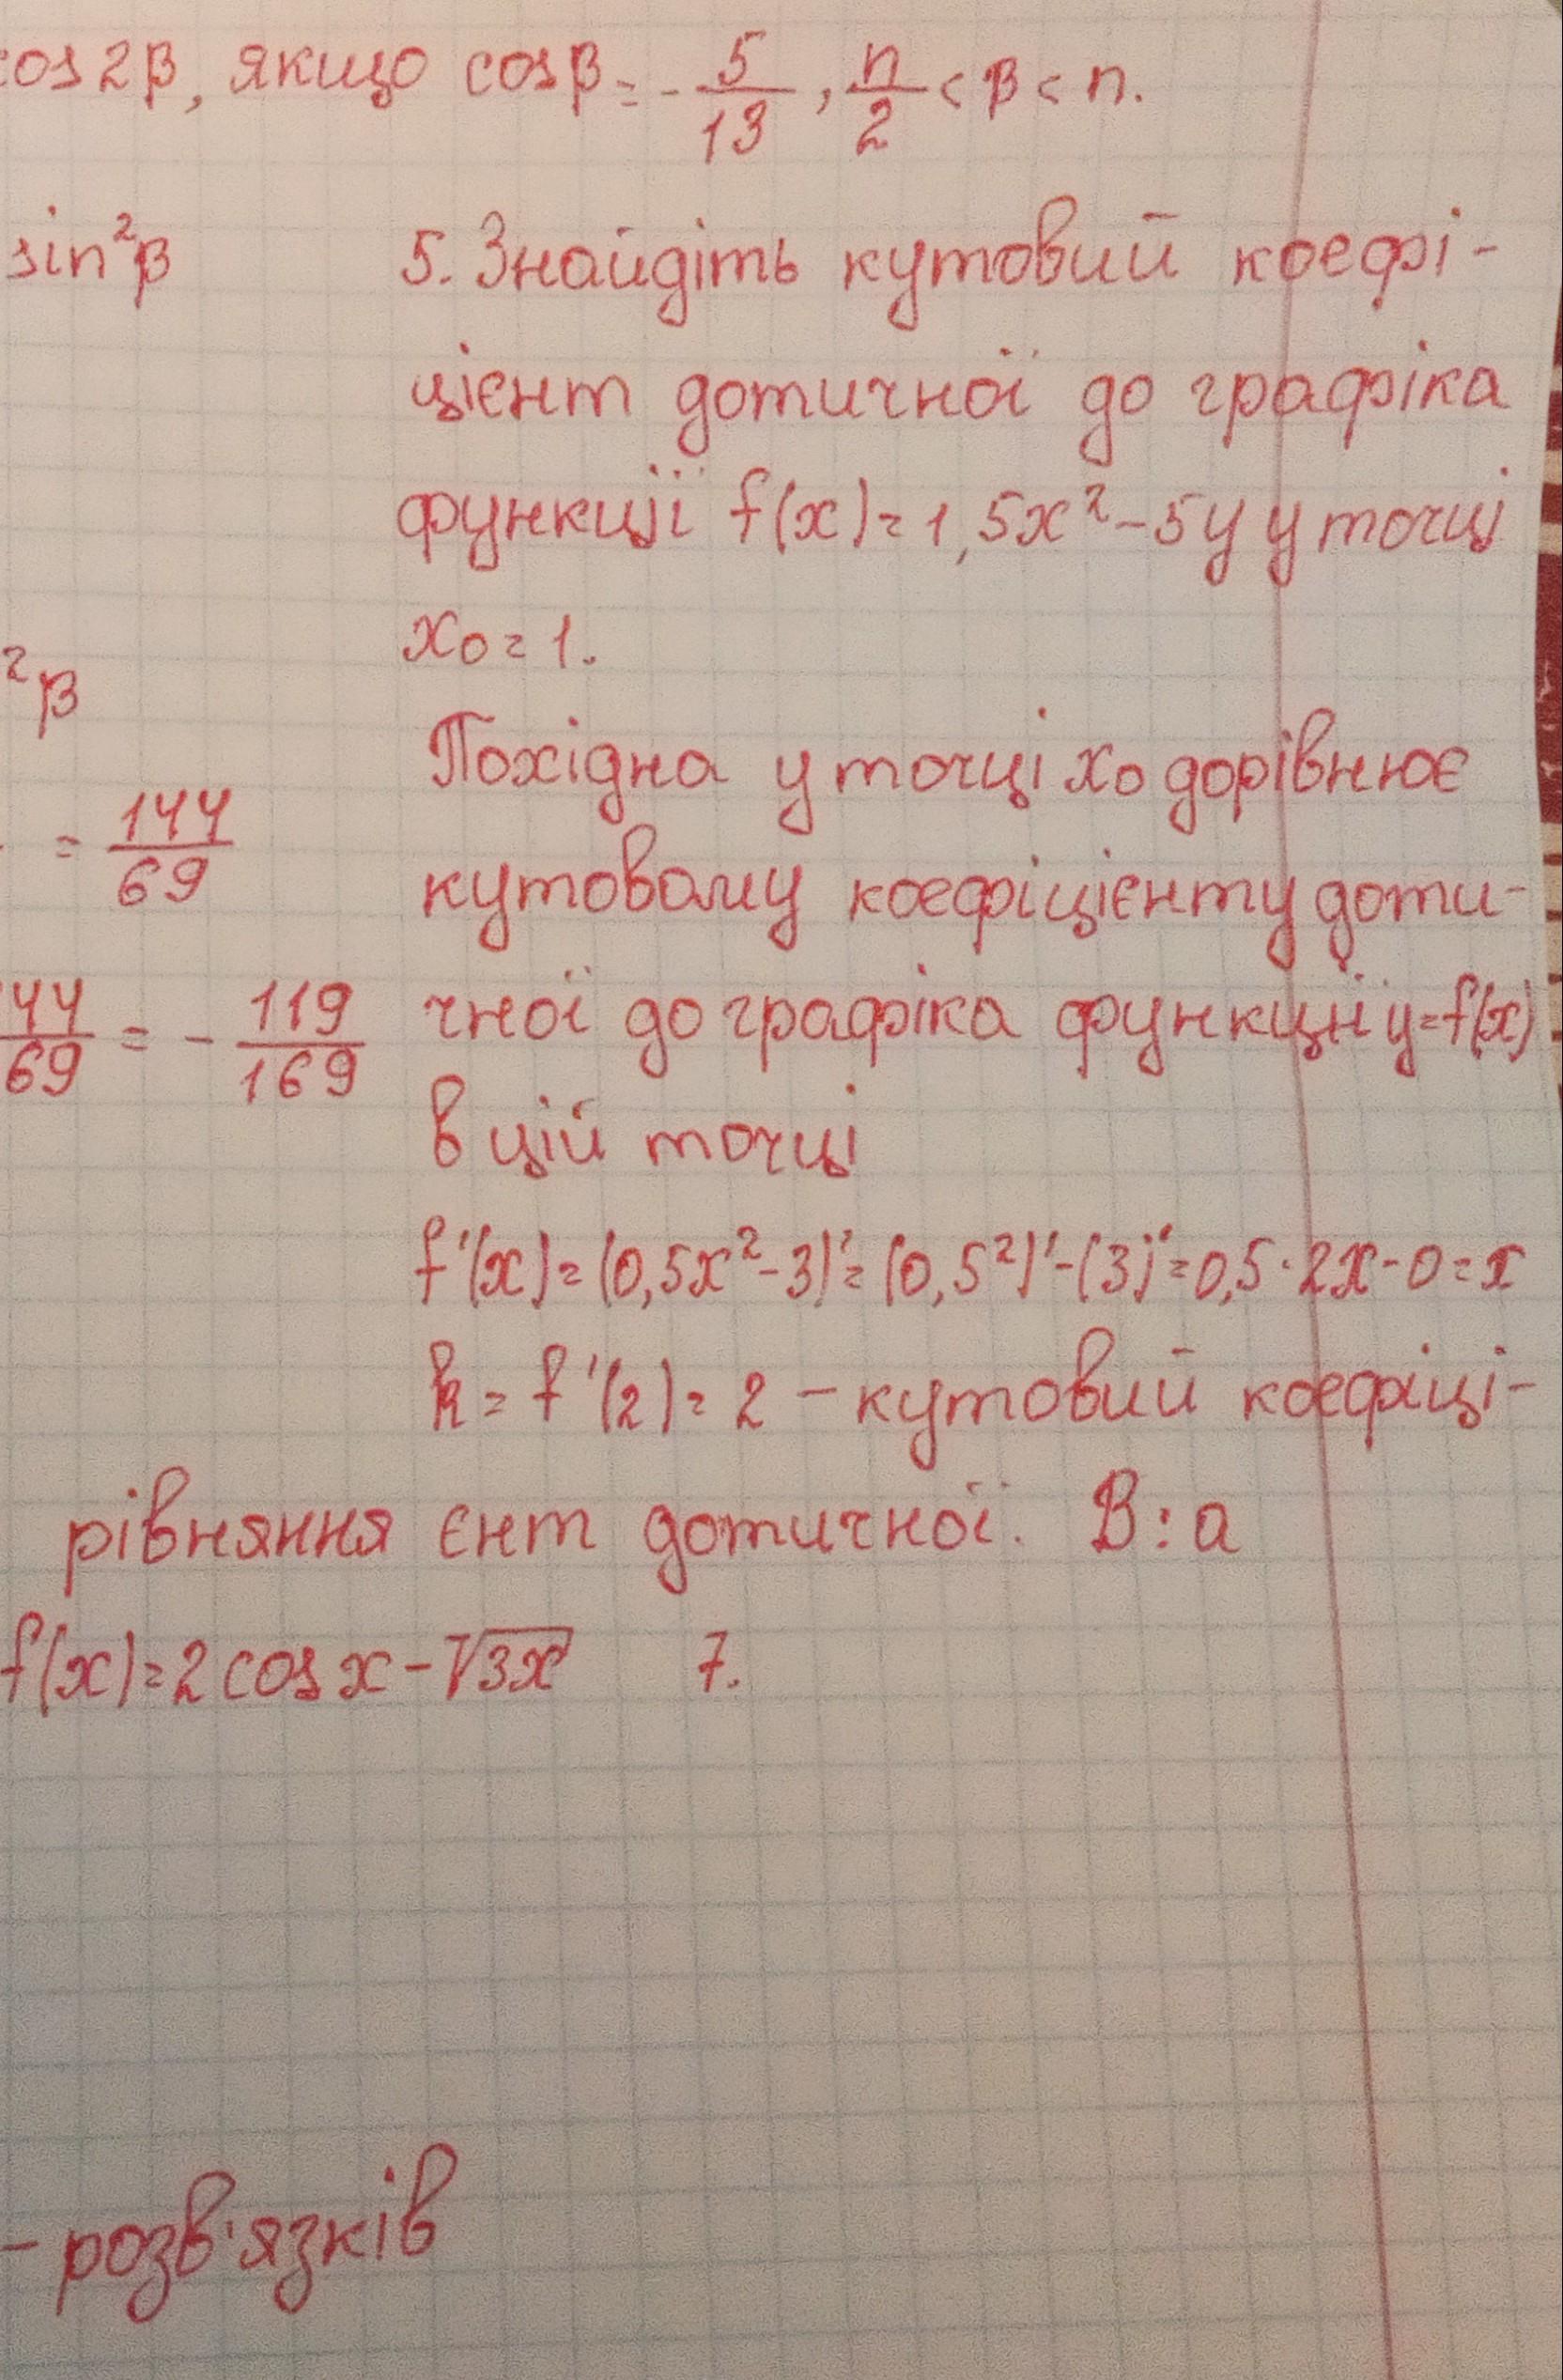 cos2β, якщо cosβ=-5/13, п/2<β<п.
sin²β
5. Знайдіть кутовий коефі-
цієнт дотичної до графіка
функції f(x)=1,5x²-5y у точці
x₀=1.
²β
Похідна у точці x₀ дорівнює
=144/69
кутовому коефіцієнту доти-
44/69=-119/169
чної до графіка функції y=f(x)
в цій точці
f'(x)=(0,5x²-3)'=(0,5²)'-(3)'=0,5·2x-0=x
k=f'(2)=2-кутовий коефіці-
рівняння
єнт дотичної. В: а
f(x)=2cosx-√3x
7.
-розв'язків